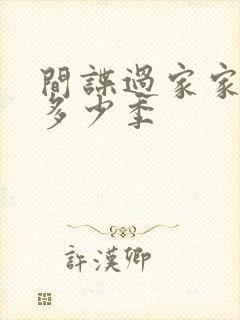 間諜過家家
多少季
許漢卿